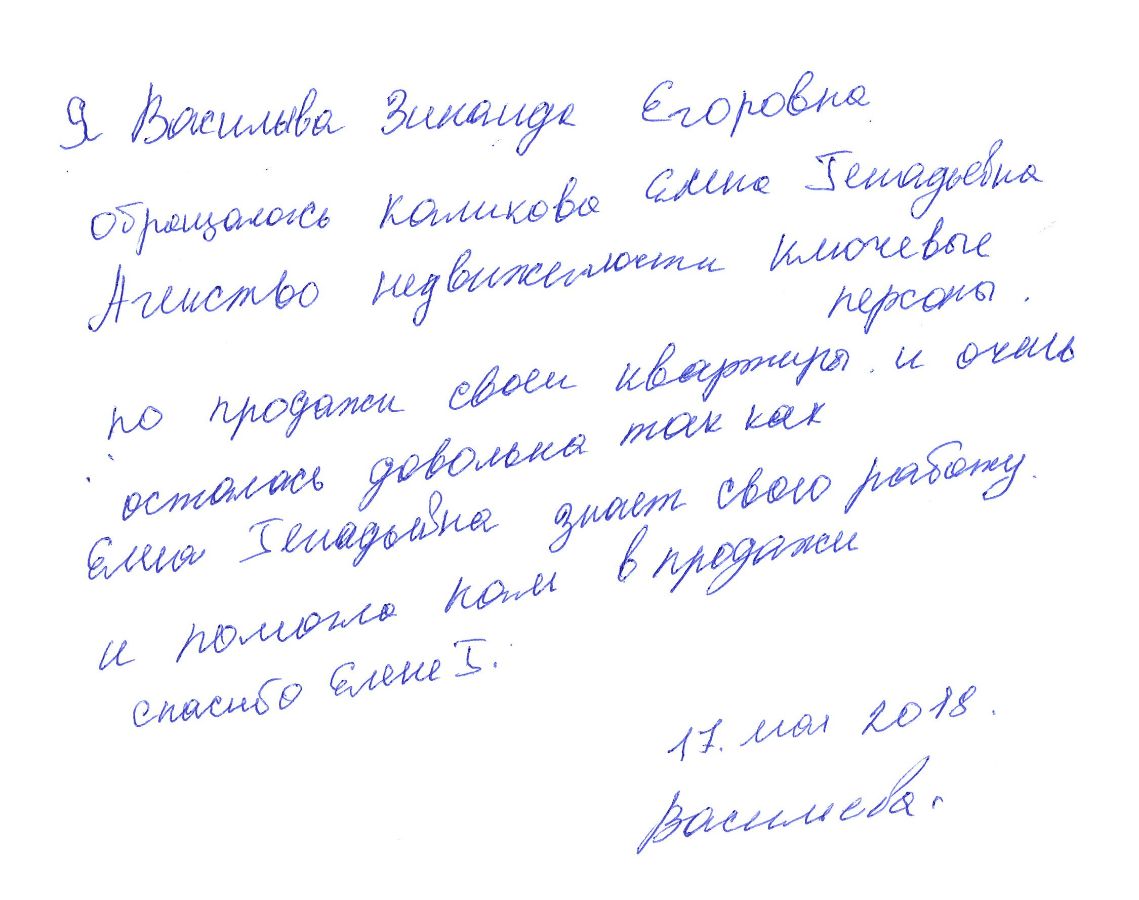 Я Василыва Зинаида Егоровна
обращалась Каликова Елена Генадьевна
Агенство недвижемости ключевые
персоны.
по продажи своей квартиры. и очень
осталась довольна так как
Елена Генадьевна знает свою работу.
и помогла нам в продажи
спасибо Елене Г.
17. мая 2018.
Василева.